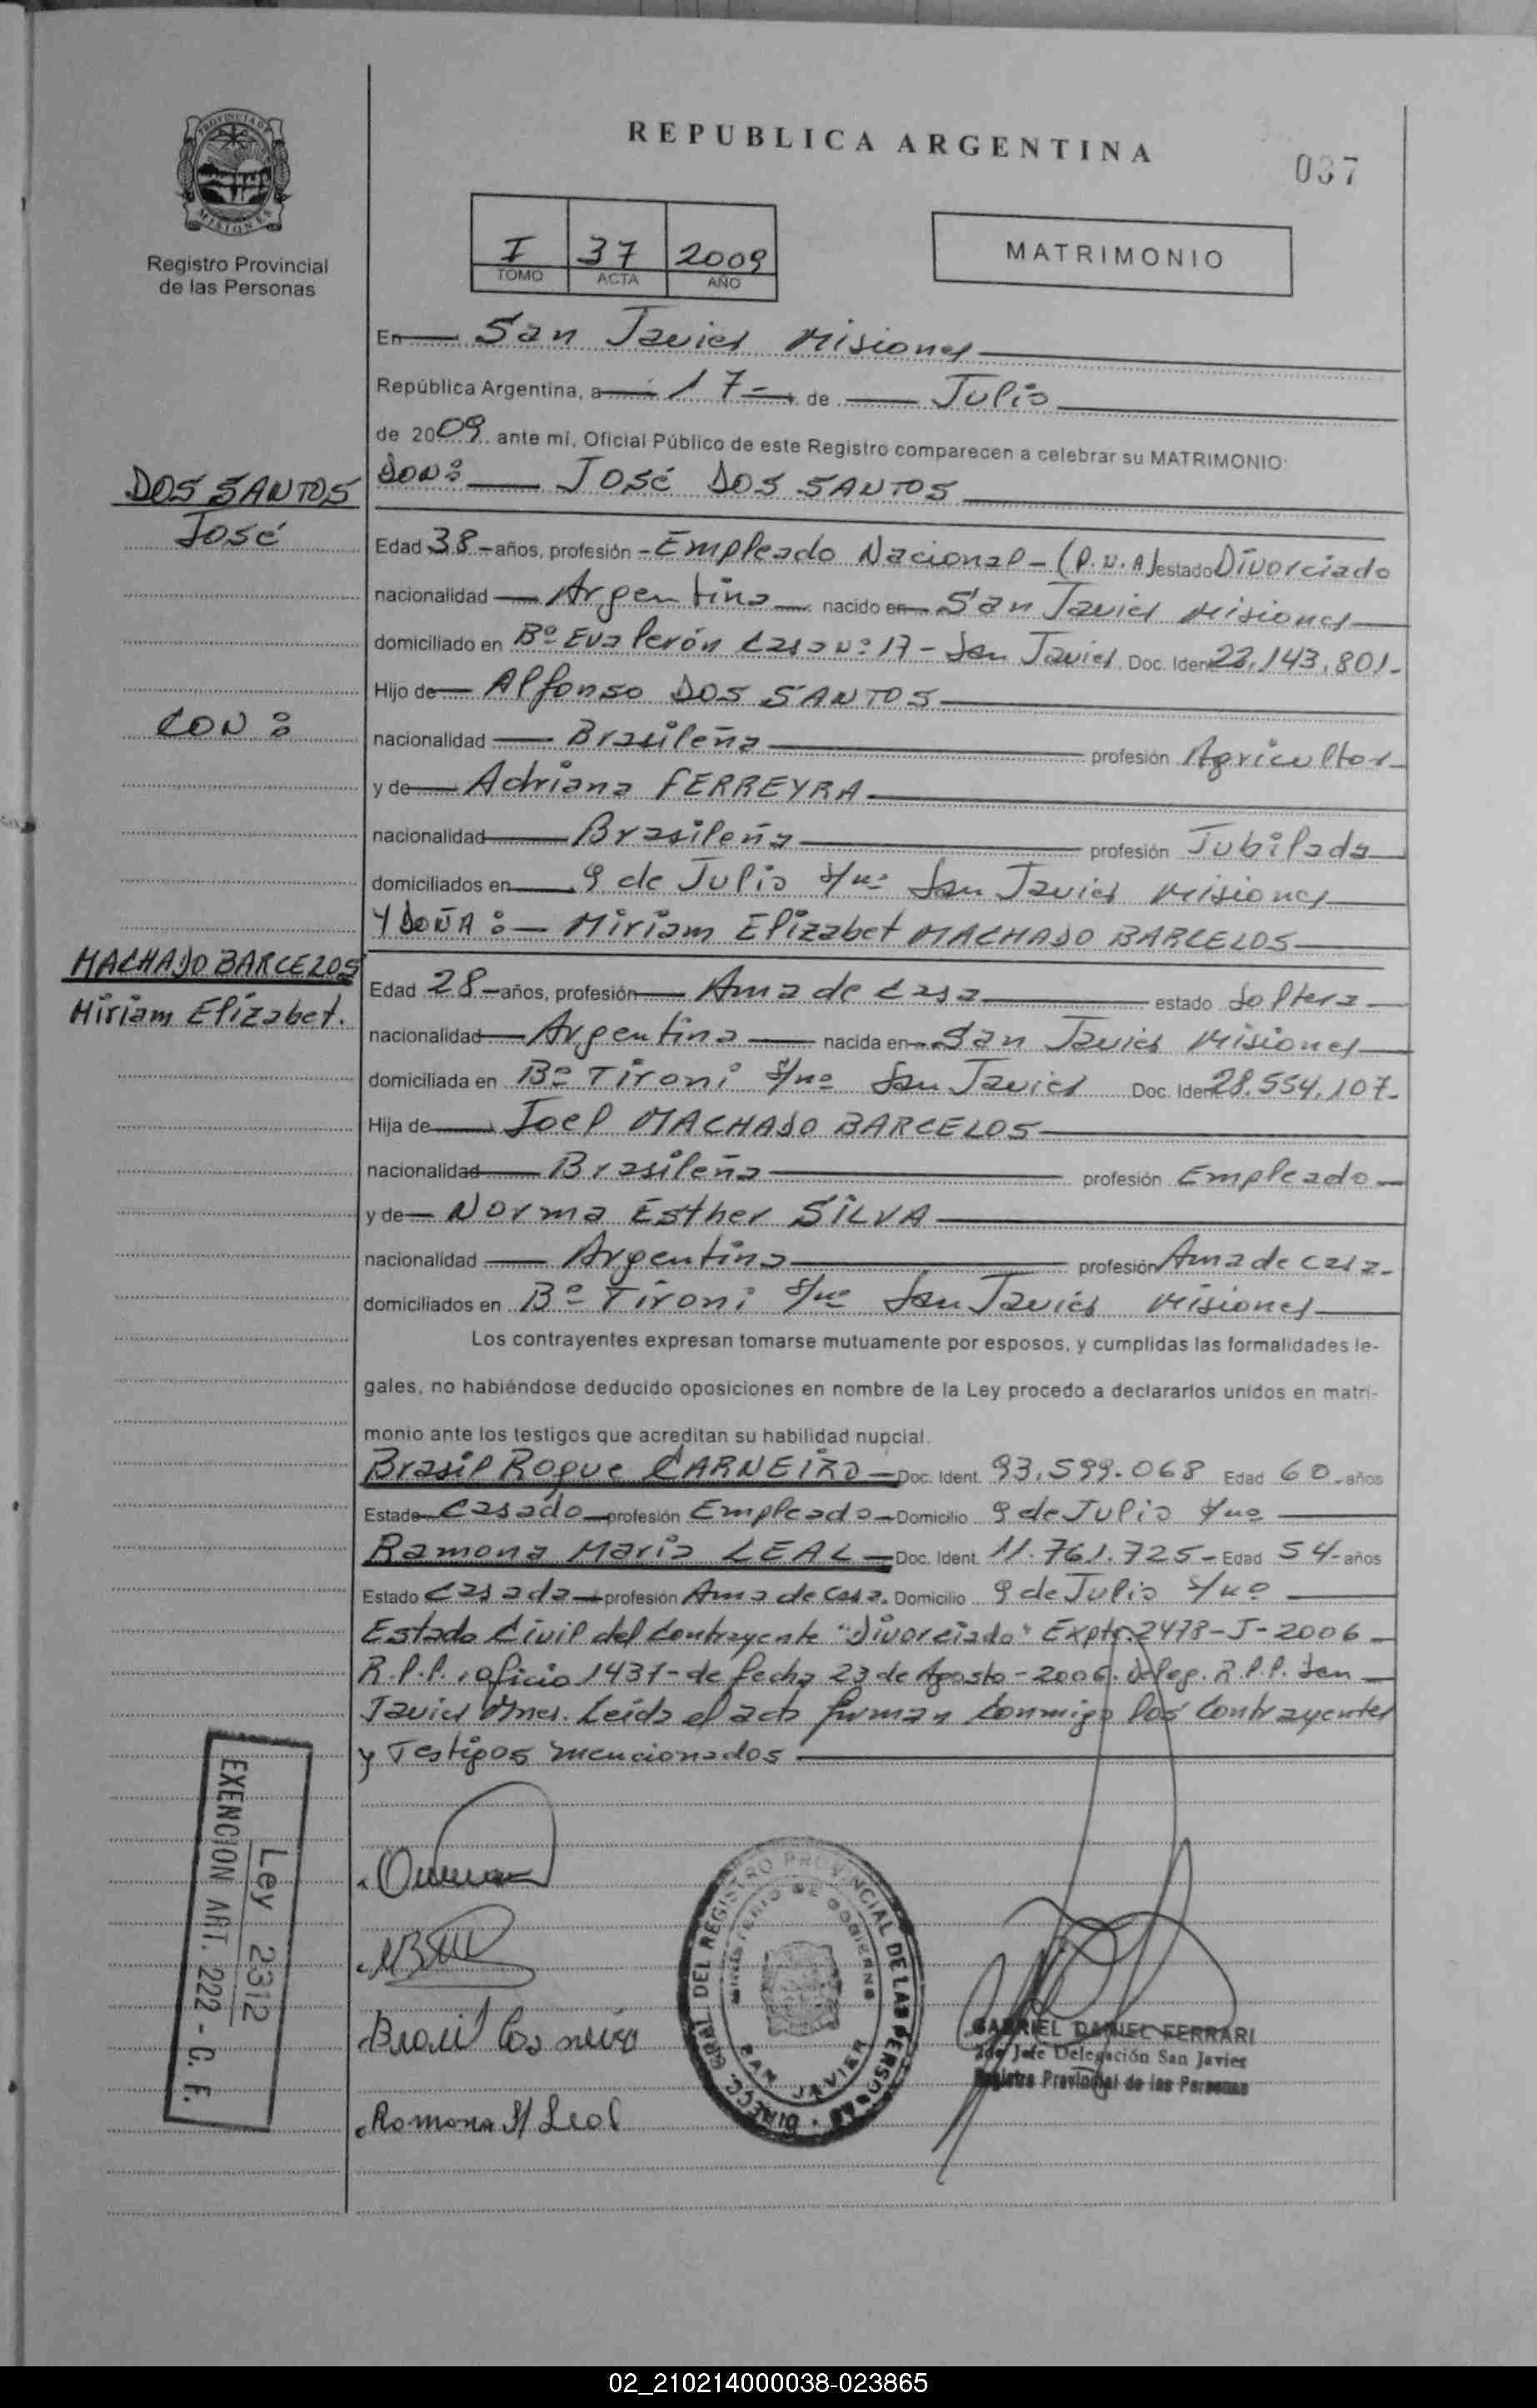 REPUBLICA ARGENTINA
037
PROVINCIA DE
MISIONES
Registro Provincial
de las Personas
I 37 2009
TOMO ACTA AÑO
MATRIMONIO
En San Javier Misiones
República Argentina, a 17 de Julio
de 2009 ante mí, Oficial Público de este Registro comparecen a celebrar su MATRIMONIO:
DOS SANTOS
José
DON: José DOS SANTOS
Edad 38 años, profesión Empleado Nacional - (P.N.A) estado Divorciado
nacionalidad Argentina nacido en San Javier Misiones
domiciliado en Bº Eva Perón Casa Nº 17 - San Javier Doc. Iden 22.143.801-
Hijo de Alfonso DOS SANTOS
CON:
nacionalidad Brasileña profesión Agricultor
y de Adriana FERREYRA
nacionalidad Brasileña profesión Jubilada
domiciliados en 9 de Julio s/nº San Javier Misiones
Y DOÑA: Miriam Elizabet MACHADO BARCELOS
MACHADO BARCELOS
Miriam Elizabet.
Edad 28 años, profesión Ama de Casa estado Soltera
nacionalidad Argentina nacida en San Javier Misiones
domiciliada en Bº Tironi s/nº San Javier Doc. Iden 28.554.107-
Hija de Joel MACHADO BARCELOS
nacionalidad Brasileña profesión Empleado
y de Norma Esther SILVA
nacionalidad Argentina profesión Ama de casa
domiciliados en Bº Tironi s/nº San Javier Misiones
Los contrayentes expresan tomarse mutuamente por esposos, y cumplidas las formalidades le-
gales, no habiéndose deducido oposiciones en nombre de la Ley procedo a declararlos unidos en matri-
monio ante los testigos que acreditan su habilidad nupcial.
Brasil Roque CARNEIRO Doc. Ident. 93.599.068 Edad 60 años
Estado Casado profesión Empleado Domicilio 9 de Julio s/nº
Ramona María LEAL Doc. Ident. 11.761.725- Edad 54 años
Estado Casada profesión Ama de Casa. Domicilio 9 de Julio s/nº
Estado Civil del Contrayente "Divorciado" Expte. 2478-J-2006
R.P.P. oficio 1437- de fecha 23 de Agosto - 2006. Deleg. R.P.P. San
Javier Mnes. Leída el acta firman Conmigo los Contrayentes
y Testigos mencionados
Ley 2312
EXENCION ART. 222 - C. F.
Brasil Carneiro
Ramona M Leal
DIRECC. GRAL. DEL REGISTRO PROVINCIAL DE LAS PERSONAS
MINISTERIO DE GOBIERNO
SAN JAVIER
GABRIEL DANIEL FERRARI
Jefe Delegación San Javier
Registro Provincial de las Personas
02_210214000038-023865